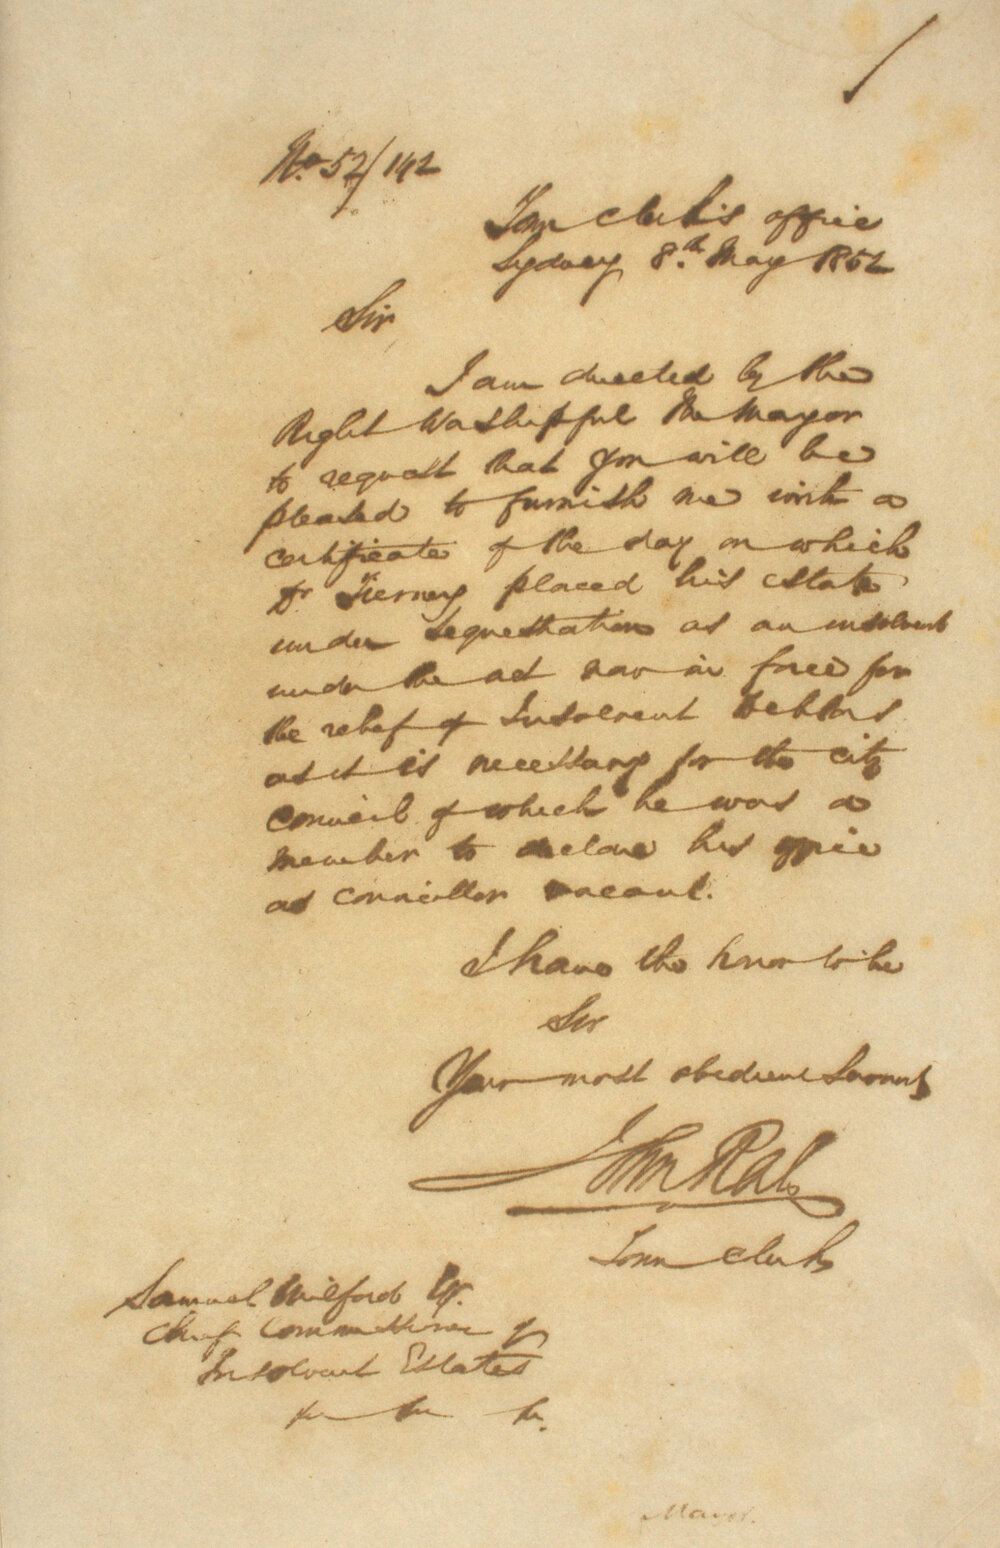 No. 52/142
Town Clerk's office
Sydney 8.th May 1852
Sir
I am directed by the
Right Worshipful the Mayor
to request that you will be
pleased to furnish me with a
certificate of the day on which
Dr Tierney placed his Estate
under Sequestration as an insolvent
under the act now in force for
the relief of Insolvent Debtors
as it is necessary for the city
council of which he was a
member to declare his office
as councillor vacant.
I have the honor to be
Sir
Your most obedient Servant
John Rae
Town Clerk
Samuel Milford Esq.
Chief Commissioner of
Insolvent Estates
Mayor.